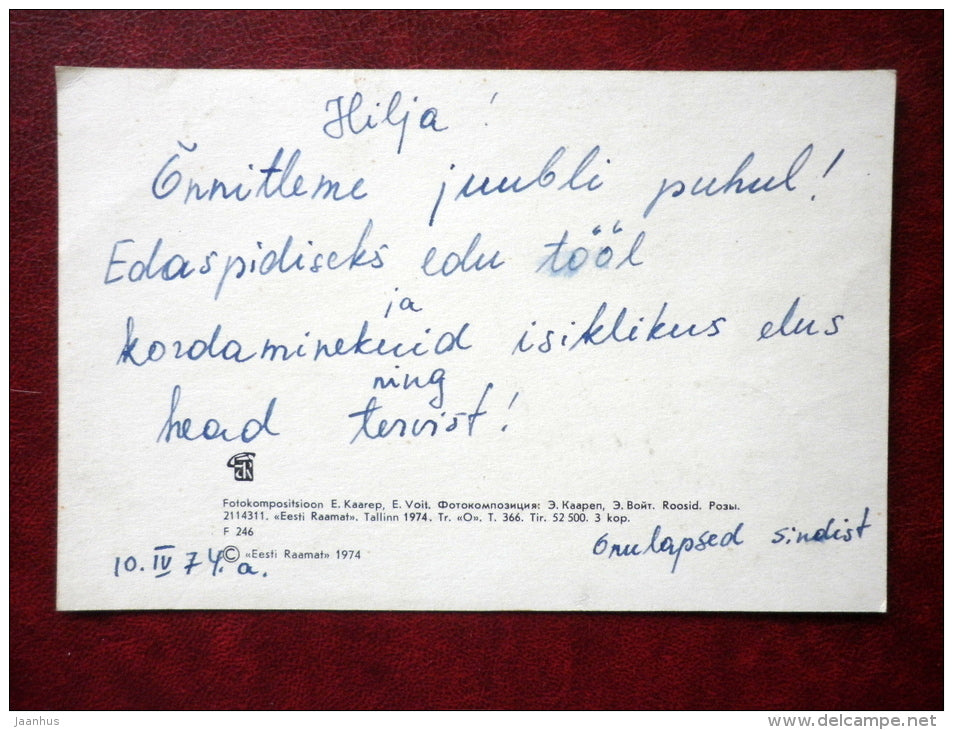 Hilja!
Õnnitleme juubli puhul!
Edaspidiseks edu tööl
ja
kordaminekuid isiklikus elus
ning
head tervist!
Fotokompositsioon E. Kaarep, E. Voit. Фотокомпозиция: Э. Каареп, Э. Войт. Roosid. Розы.
2114311. «Eesti Raamat». Tallinn 1974. Tr. «O». T. 366. Tir. 52 500. 3 kop.
F 246
© «Eesti Raamat» 1974
onulapsed Sindist
10. IV 74. a.
Jaanhus
www.delcampe.net